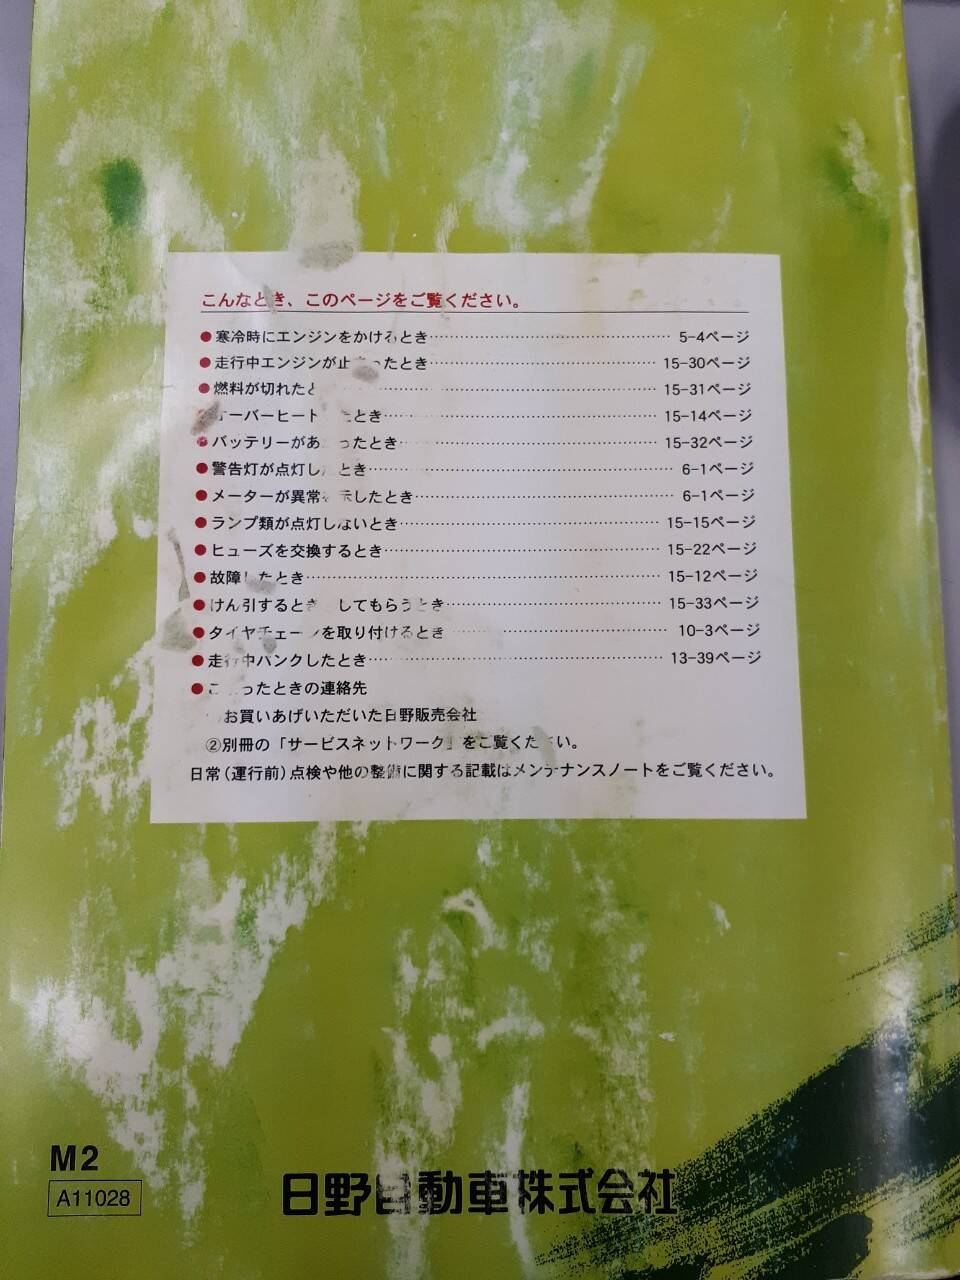 こんなとき、このページをご覧ください。
●寒冷時にエンジンをかけるとき 5-4ページ
●走行中エンジンが止まったとき 15-30ページ
●燃料が切れたと 15-31ページ
オーバーヒート たとき 15-14ページ
●バッテリーがあ ったとき 15-32ページ
●警告灯が点灯したとき 6-1ページ
●メーターが異常表示したとき 6-1ページ
●ランプ類が点灯しないとき 15-15ページ
●ヒューズを交換するとき 15-22ページ
●故障したとき 15-12ページ
●けん引するとき してもらうとき 15-33ページ
●タイヤチェーンを取り付けるとき 10-3ページ
●走行中パンクしたとき 13-39ページ
●こ ったときの連絡先
お買いあげいただいた日野販売会社
②別冊の「サービスネットワーク」をご覧ください。
日常(運行前)点検や他の整備に関する記載はメンテナンスノートをご覧ください。
M2
A11028
日野自動車株式会社